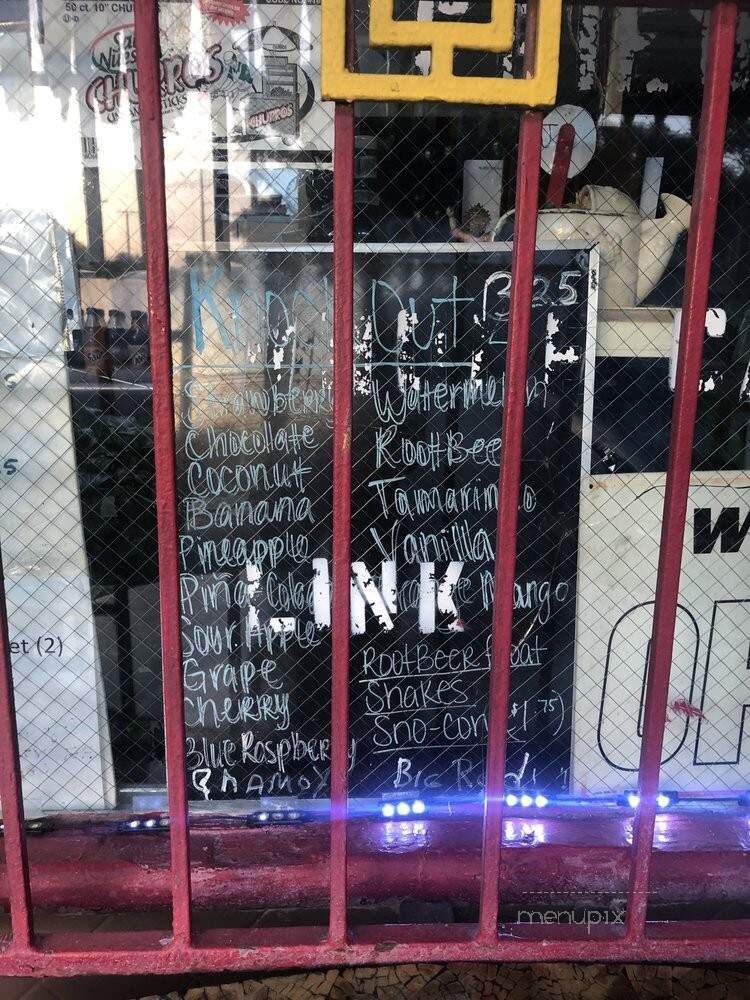 50 ct. 10" CHU
CHURROS
CHURROS
Knock Out 3.25
Strawberry
Chocolate
Coconut
Banana
Pineapple
Piña Colada
Sour Apple
Grape
Cherry
Blue Raspberry
Watermelon
RootBee
Tamarindo
Vanilla
Mango
RootBeer float
Shakes
Sno-Con $1.75)
Big Red
LINK
et (2)
W
menupix